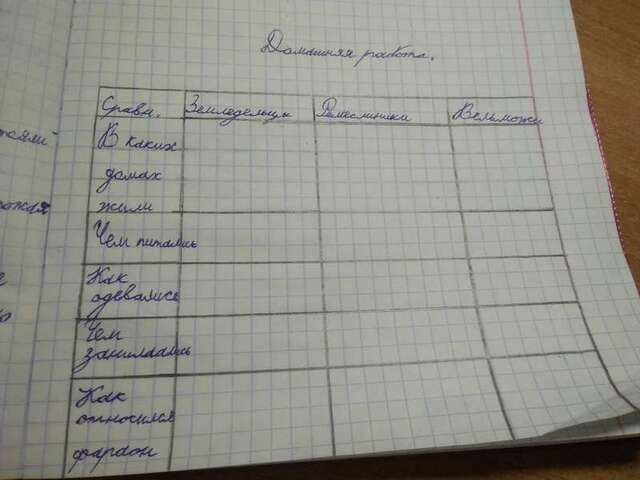 Домашняя работа.
Сравн. Земледельцы Ремесленники Вельможи
В каких
домах
жили
Чем питались
Как
одевались
Чем
занимались
Как
относился
фараон